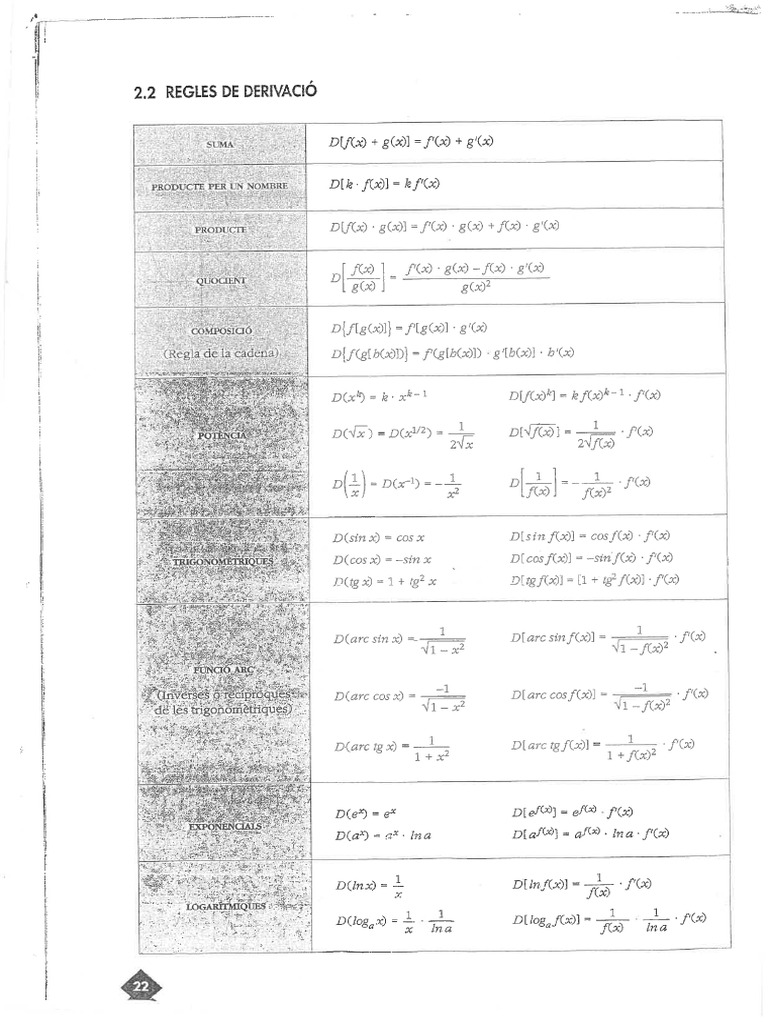 2.2 REGLES DE DERIVACIÓ
SUMA
D[f(x) + g(x)] = f'(x) + g'(x)
PRODUCTE PER UN NOMBRE
D[k · f(x)] = k f'(x)
PRODUCTE
D[f(x) · g(x)] = f'(x) · g(x) + f(x) · g'(x)
QUOCIENT
D[f(x)/g(x)] = (f'(x) · g(x) – f(x) · g'(x))/g(x)²
COMPOSICIÓ
(Regla de la cadena)
D{f[g(x)]} = f'[g(x)] · g'(x)
D{f(g[h(x)])} = f'(g[h(x)]) · g'[h(x)] · h'(x)
POTÈNCIA
D(xᵏ) = k · xᵏ⁻¹ D[f(x)ᵏ] = k f(x)ᵏ⁻¹ · f'(x)
D(√x) = D(x^(1/2)) = 1/(2√x) D[√f(x)] = 1/(2√f(x)) · f'(x)
D(1/x) = D(x⁻¹) = –1/x² D[1/f(x)] = –1/f(x)² · f'(x)
TRIGONOMÈTRIQUES
D(sin x) = cos x D[sin f(x)] = cos f(x) · f'(x)
D(cos x) = –sin x D[cos f(x)] = –sin f(x) · f'(x)
D(tg x) = 1 + tg² x D[tg f(x)] = [1 + tg² f(x)] · f'(x)
FUNCIÓ ARC
(Inverses o recíproques
de les trigonomètriques)
D(arc sin x) = 1/√(1 – x²) D[arc sin f(x)] = 1/√(1 – f(x)²) · f'(x)
D(arc cos x) = –1/√(1 – x²) D[arc cos f(x)] = –1/√(1 – f(x)²) · f'(x)
D(arc tg x) = 1/(1 + x²) D[arc tg f(x)] = 1/(1 + f(x)²) · f'(x)
EXPONENCIALS
D(eˣ) = eˣ D[e^f(x)] = e^f(x) · f'(x)
D(aˣ) = aˣ · ln a D[a^f(x)] = a^f(x) · ln a · f'(x)
LOGARÍTMIQUES
D(ln x) = 1/x D[ln f(x)] = 1/f(x) · f'(x)
D(logₐ x) = 1/x · 1/ln a D[logₐ f(x)] = 1/f(x) · 1/ln a · f'(x)
22